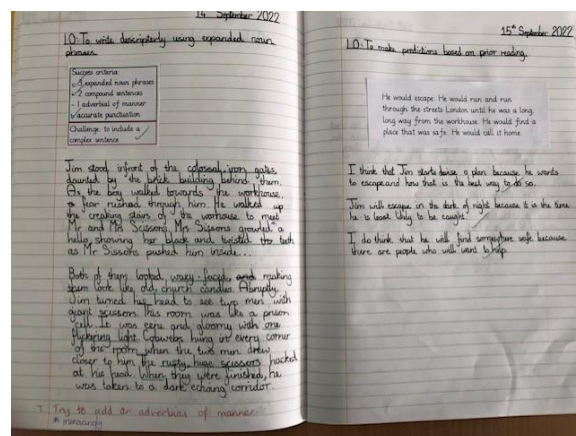 14 September 2022
LO: To write descriptively using expanded noun
phrases.
Success criteria:
3 expanded noun phrases
2 compound sentences
- 1 adverbial of manner
accurate punctuation
Challenge: to include a
complex sentence
Jim stood infront of the colossal, iron gates,
daunted by the brick building behind them.
As the boy walked towards the workhouse,
a fear rushed through him. He walked up
the creaking stairs of the worhouse to meet
Mr and Mrs Sissons. Mrs Sissons growled a
hello, showing her black and twisted teeth
as Mr Sissons pushed him inside...
Both of them looked waxy-faced, and making
them look like old church candles. Abruptly,
Jim turned his head to see two men with
giant scissors. This room was like a prison
cell. It was eerie and gloomy with one
flickering light. Cobwebs hung in every corner
of the room when the two men drew
closer to him the rusty, huge scissors hacked
at his head. When they were finished, he
was taken to a dark echoing corridor.
T Try to add an adverbial of manner
* menacingly
15th September 2022
LO: To make predictions based on prior reading.
He would escape. He would run and run
through the streets London until he was a long,
long way from the workhouse. He would find a
place that was safe. He would call it home.
I think that Jim starts a plan because he wants
to escape and how that is the best way to do so.
Jim will escape in the dark of night because it is the time
he is least likely to be caught.
I do think that he will find somewhere safe because
there are people who will want to help.